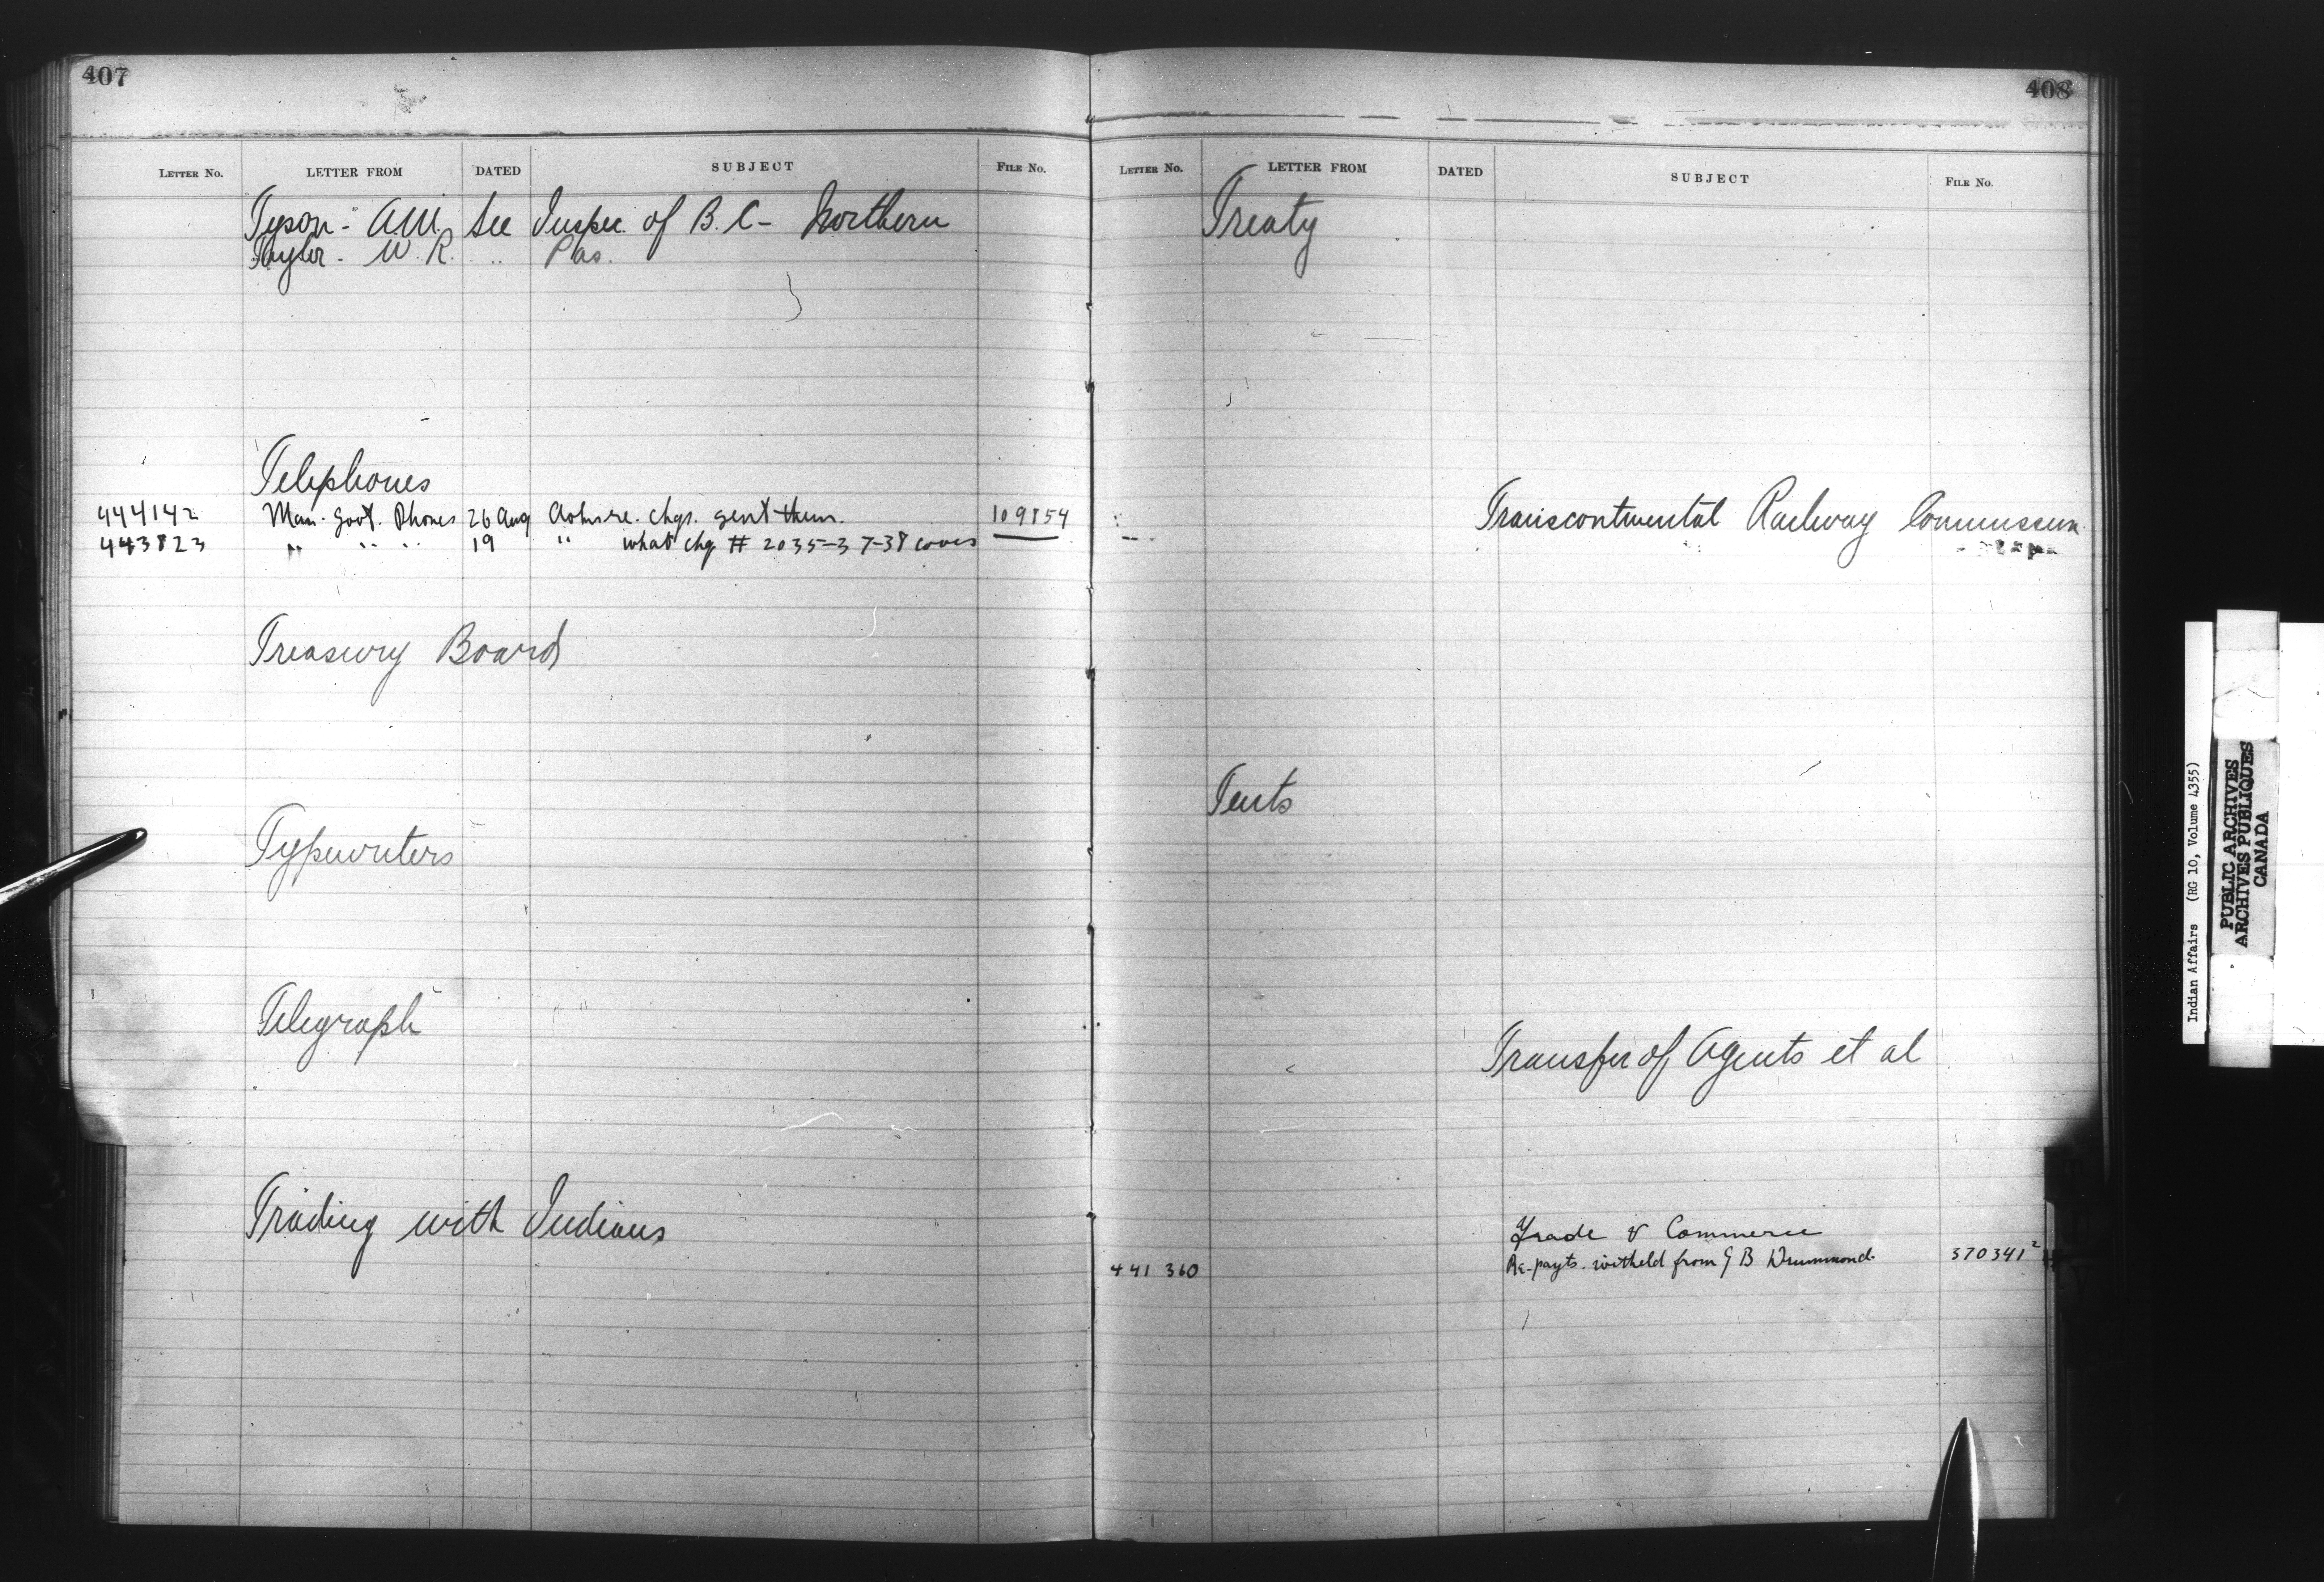 407
LETTER No. LETTER FROM DATED SUBJECT FILE No.
Tyson - A.M. See Inspec. of B.C - Northern
Taylor - W.R. " Pas.
Telephones
444142 Man. Govt. Phones 26 Aug re. chgs. sent them. 109154
443823 " " " 19 " what chg # 2035-37-38 covers
Treasury Board
Typewriters
Telegraph
Trading with Indians
408
LETTER No. LETTER FROM DATED SUBJECT FILE No.
Treaty
Transcontinental Railway Commission
Tents
Transfer of Agents et al
Trade & Commerce
441 360 Re-payts. witheld from G B Drummond. 370341²
Indian Affairs (RG 10, Volume 4355)
PUBLIC ARCHIVES
ARCHIVES PUBLIQUES
CANADA